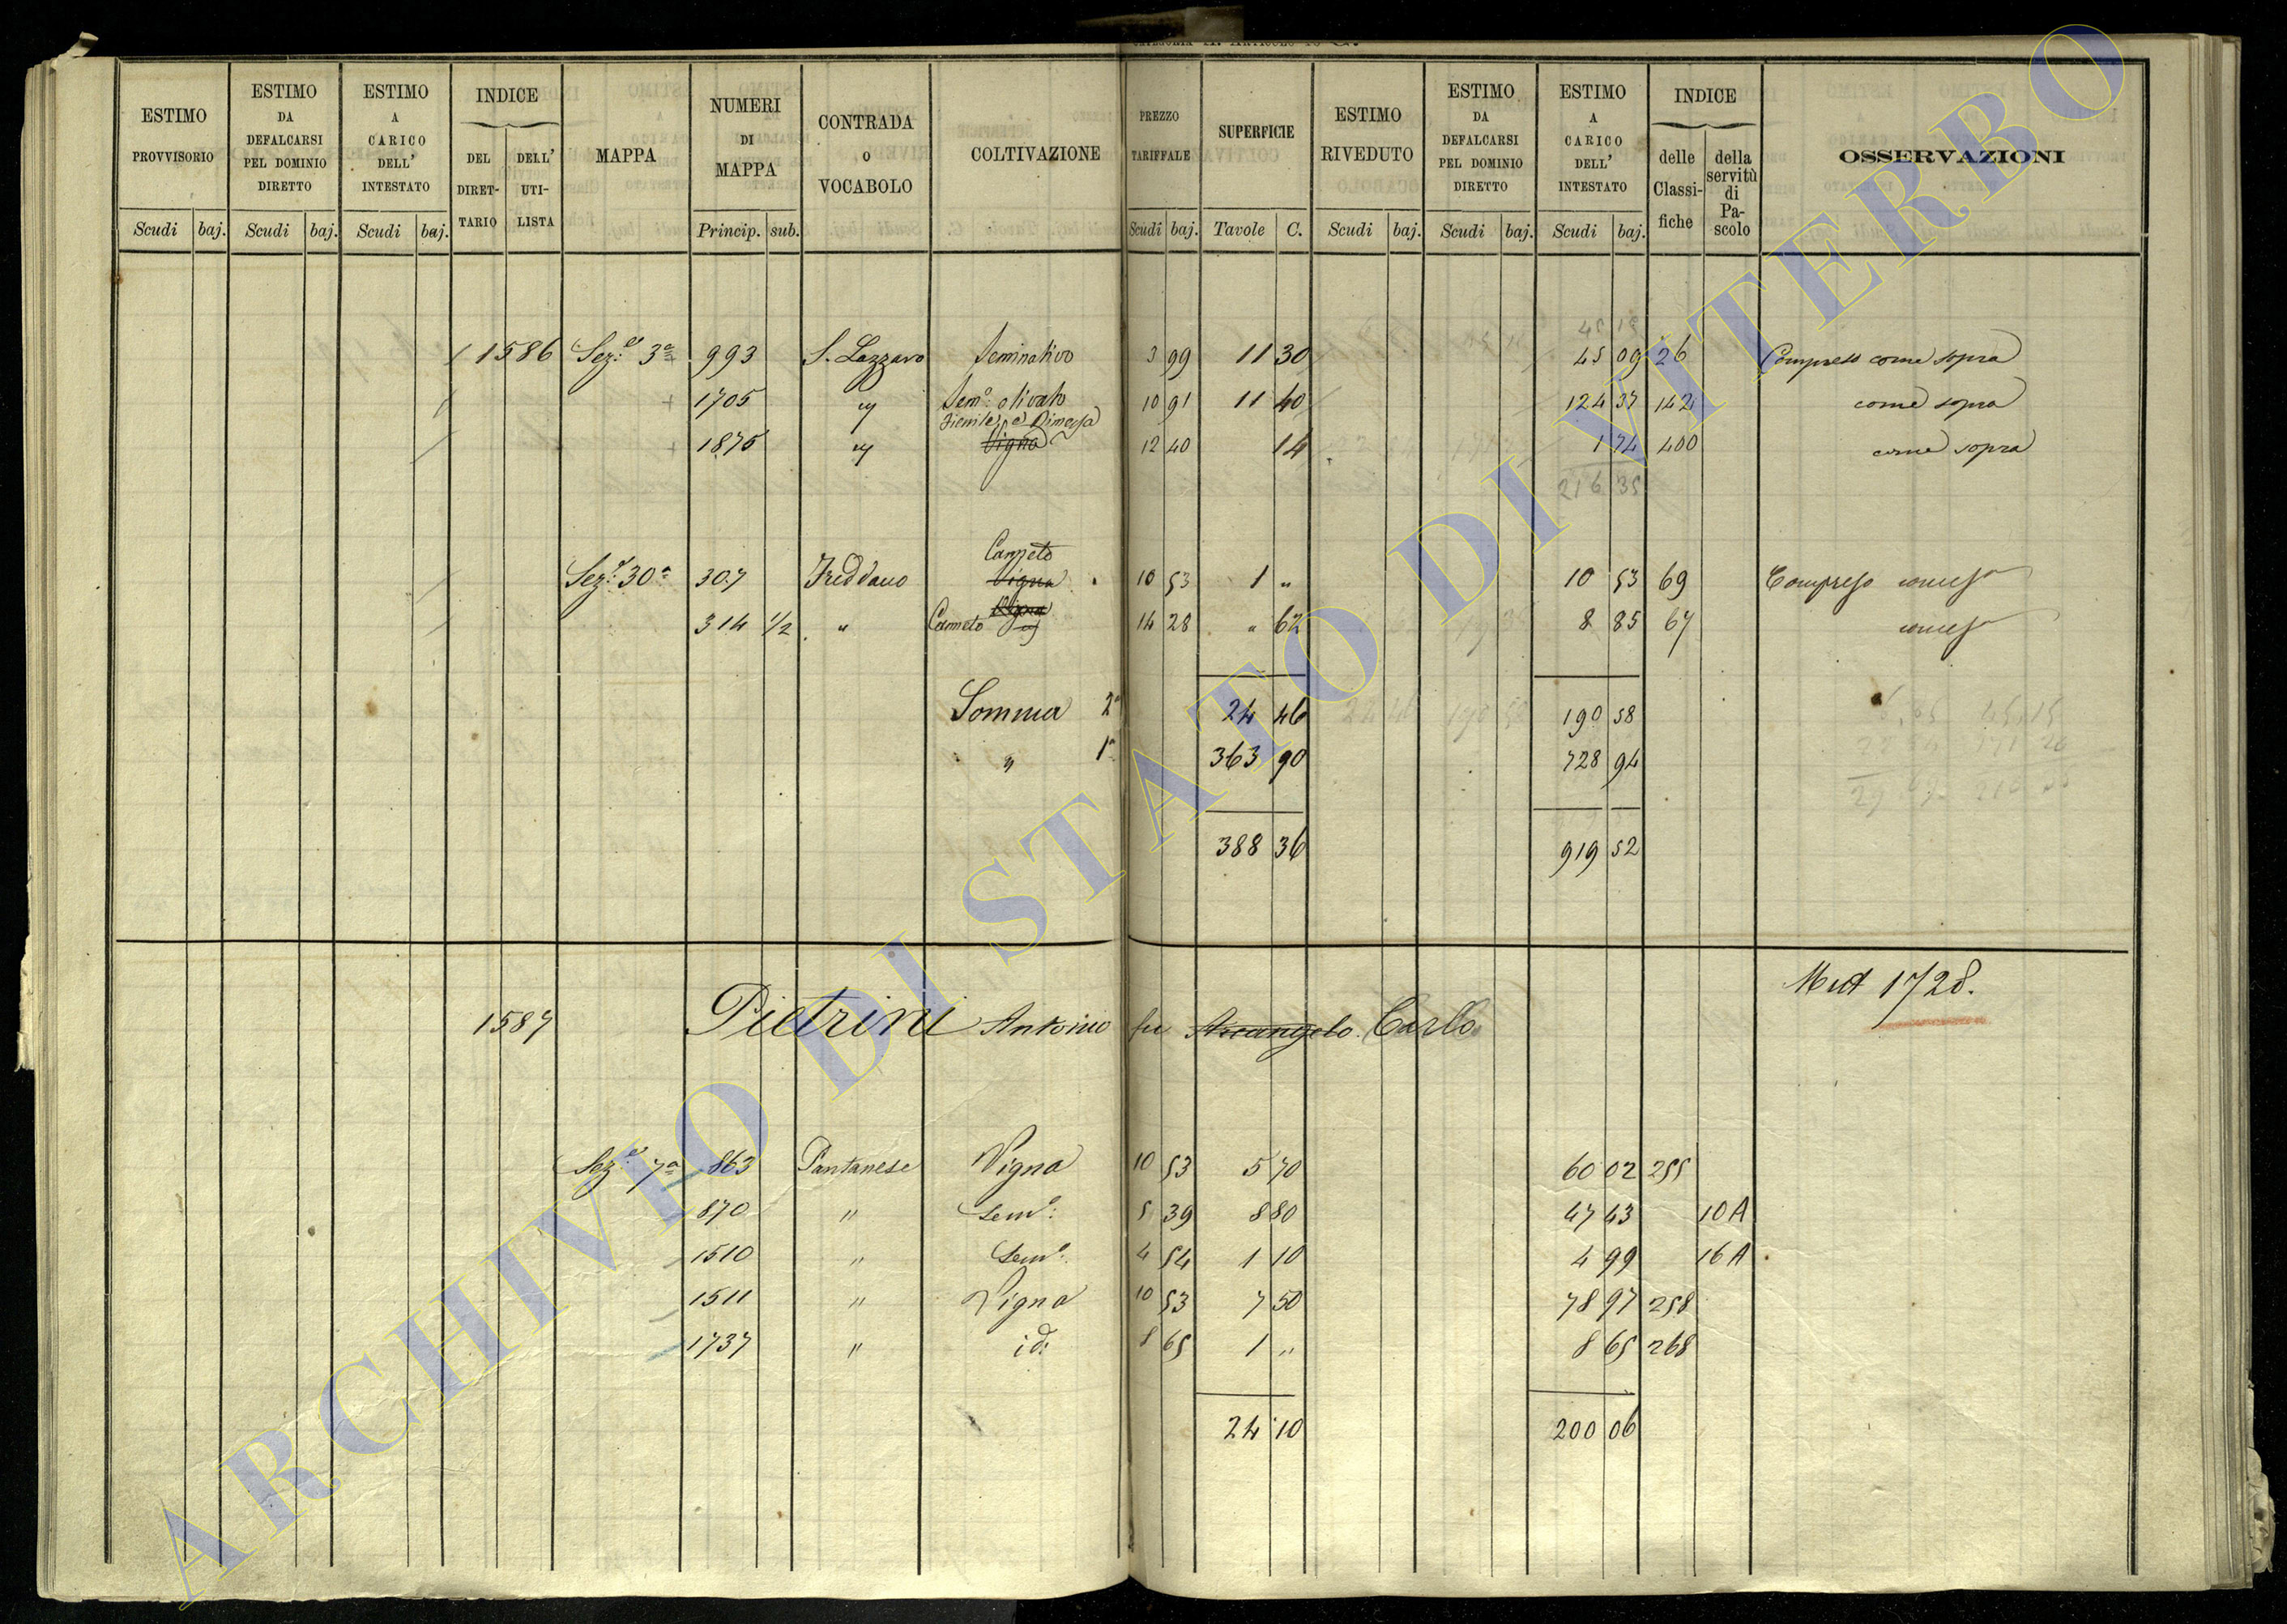 ESTIMO PROVVISORIO
ESTIMO DA DEFALCARSI PEL DOMINIO DIRETTO
ESTIMO A CARICO DELL' INTESTATO
INDICE
DEL DIRET-TARIO
DELL' UTI-LISTA
MAPPA
NUMERI DI MAPPA
CONTRADA O VOCABOLO
COLTIVAZIONE
PREZZO TARIFFALE
SUPERFICIE
ESTIMO RIVEDUTO
ESTIMO DA DEFALCARSI PEL DOMINIO DIRETTO
ESTIMO A CARICO DELL' INTESTATO
INDICE
delle Classi-fiche
della servitù di Pa-scolo
OSSERVAZIONI
Scudi baj. Scudi baj. Scudi baj. Princip. sub. Scudi baj. Tavole C. Scudi baj. Scudi baj. Scudi baj.
45 15
1586 Sez.e 3a 993 S. Lazzaro Seminativo 3 99 11 30 45 09 26 Compreso come sopra
1705 " Sem.o olivato 10 91 11 40 124 37 142 come sopra
Fienile, e Rimessa
1875 " Vigna 12 40 14 1 74 400 come sopra
216 35
Canneto
Sez.e 30a 307 Freddano Vigna 10 53 1 " 10 53 69 Compreso come sa
Vigna
314 1/2 " Canneto " 14 28 " 62 8 85 67 come sa
Somma 2a 24 46 190 58
" 1a 363 90 728 94
388 36 919 52
Mut 1728.
1587 Pietrini Antonio fu Arcangelo Carlo
Sez.e 7a 863 Pantanese Vigna 10 53 5 70 60 02 255
870 " Sem.o 5 39 8 80 47 43 10 A
1510 " Sem.o 4 54 1 10 4 99 16 A
1511 " Vigna 10 53 7 50 78 97 258
1737 " id: 8 65 1 " 8 65 268
24 10 200 06
ARCHIVIO DI STATO DI VITERBO